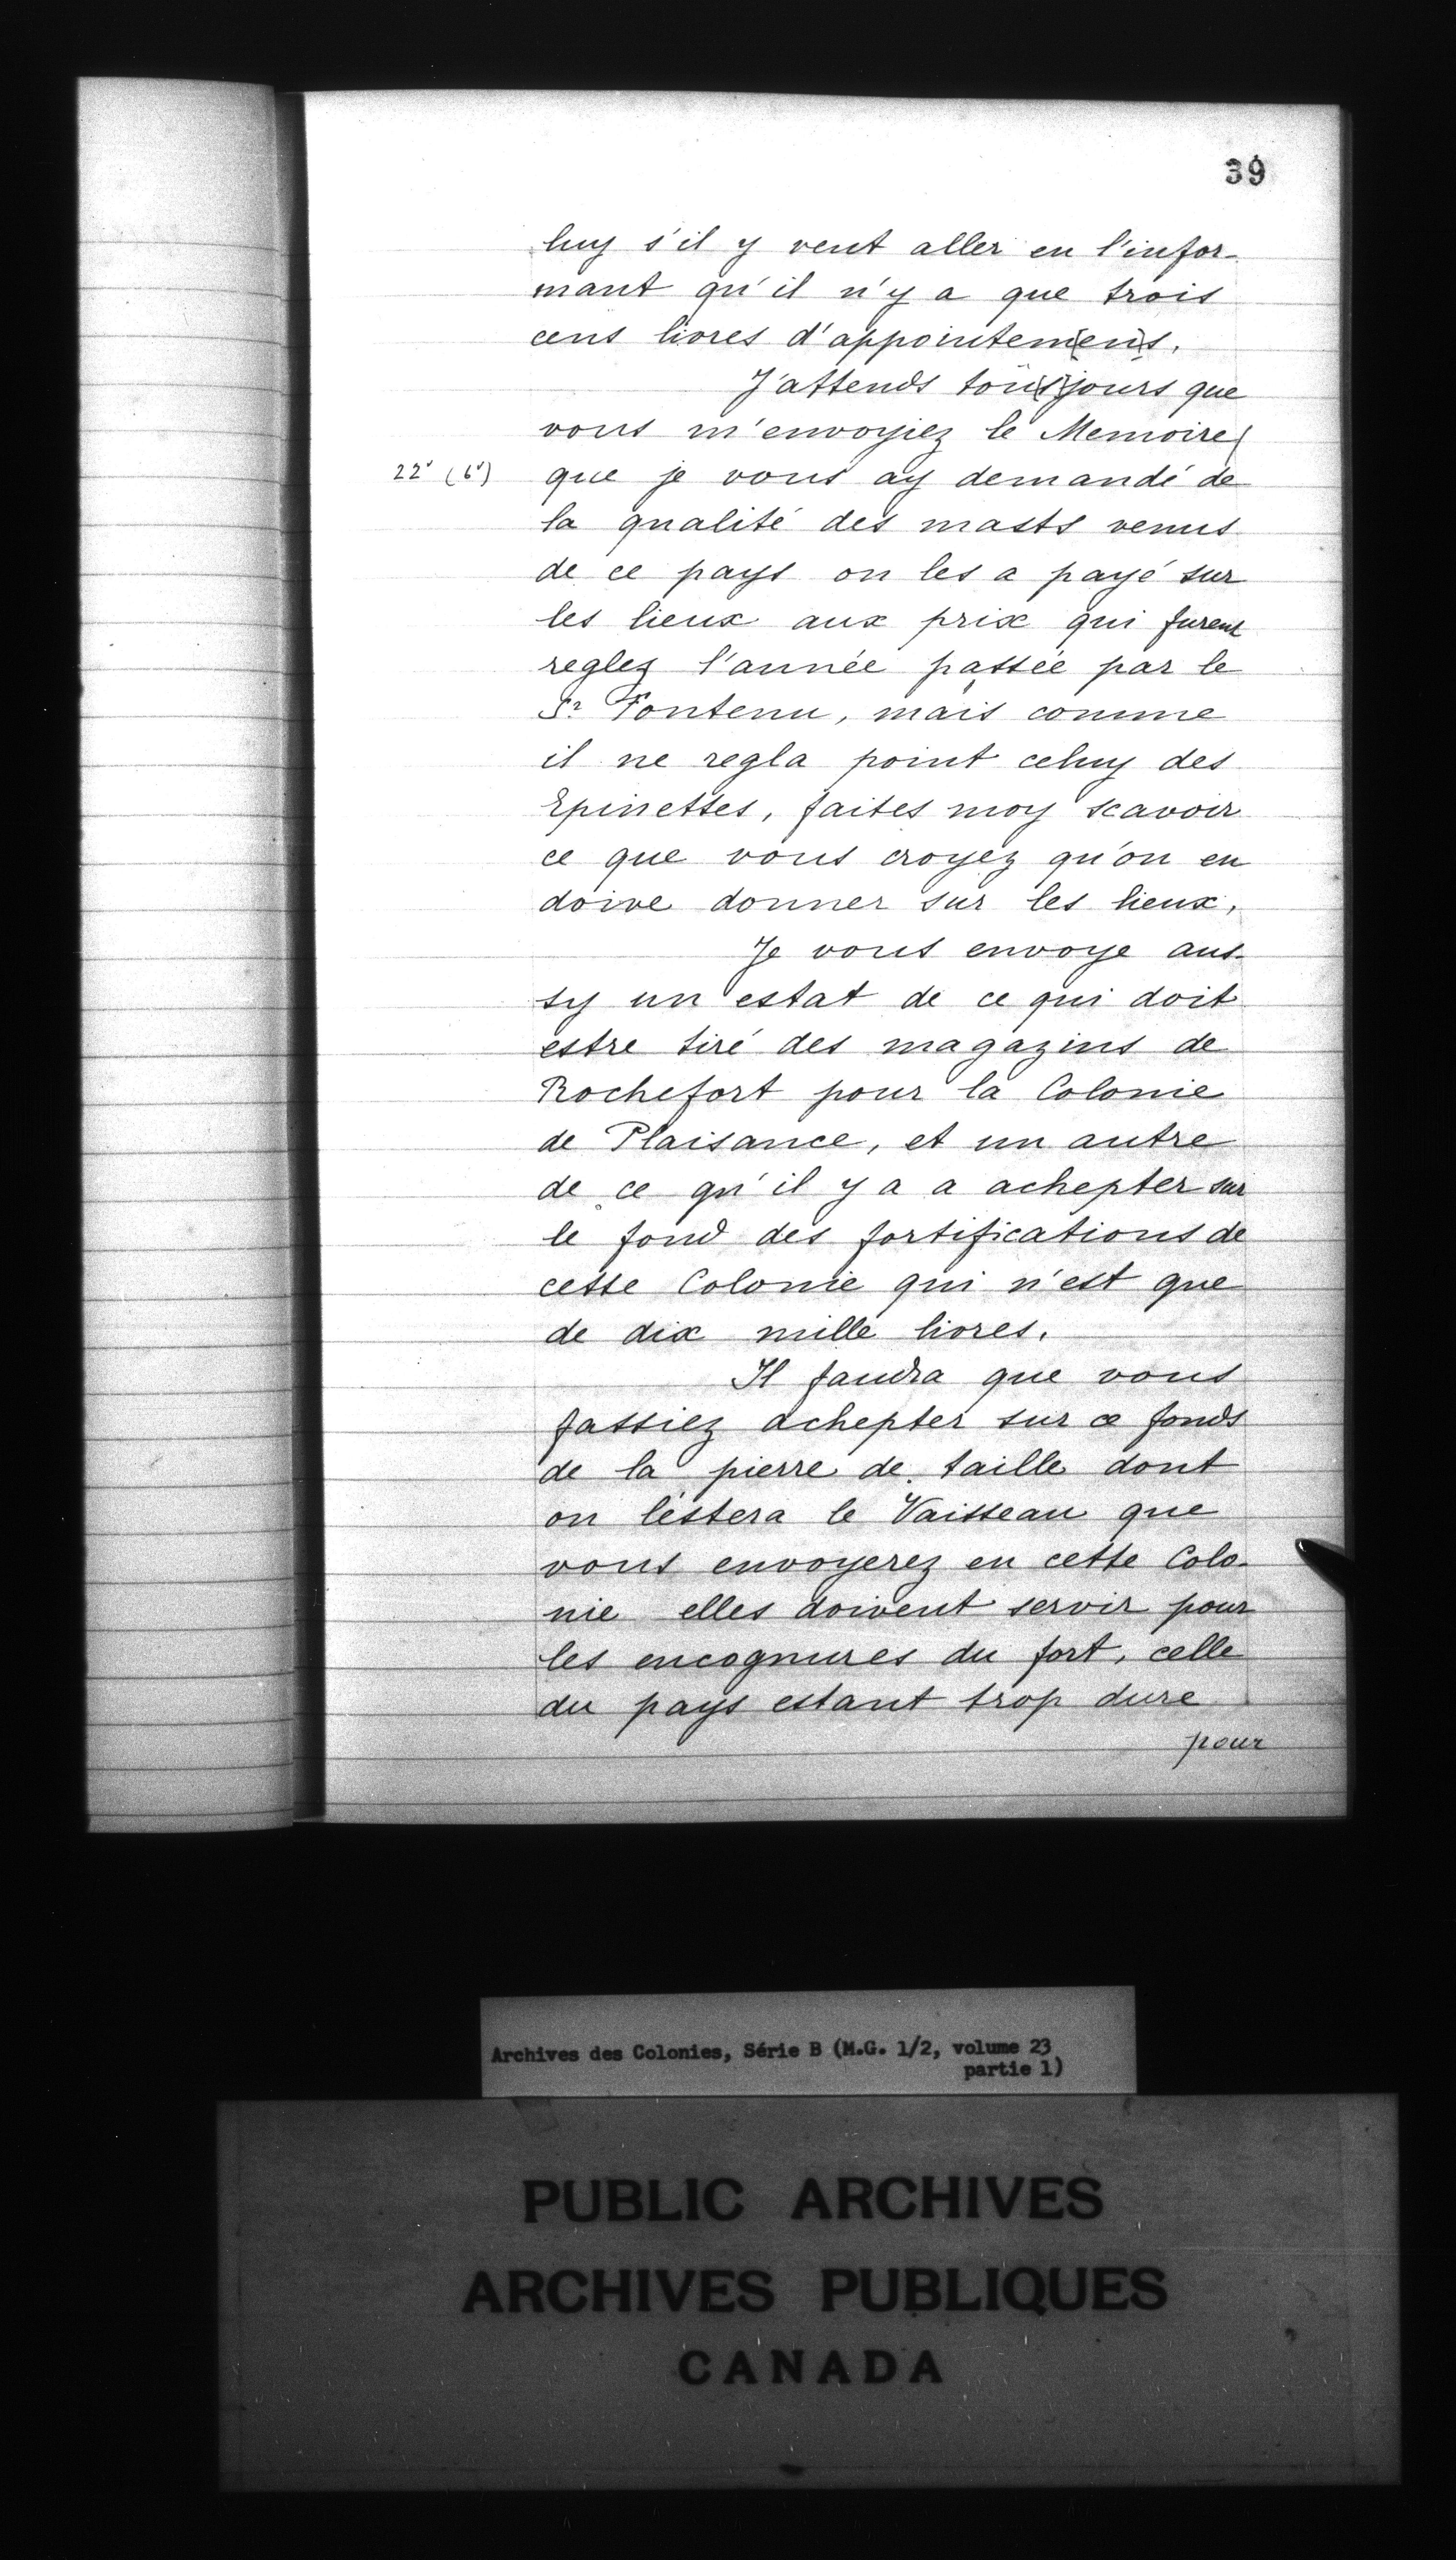 39
luy s'il y veut aller en l'infor-
mant qu'il n'y a que trois
cens livres d'appointem[en]s.
J'attends tou[s]jours que
vous m'envoyiez le Memoire
22v (6v) que je vous ay demandé de
la qualité des masts venus
de ce pays on les a payé sur
les lieux aux prix qui furent
reglez l'année passée par le
Sr. Fontenu, mais comme
il ne regla point celuy des
Epinettes, faites moy scavoir
ce que vous croyez qu'on en
doive donner sur les lieux.
Je vous envoye aus-
sy un estat de ce qui doit
estre tiré des magazins de
Rochefort pour la Colonie
de Plaisance, et un autre
de ce qu'il y a a achepter sur
le fond des fortifications de
cette Colonie qui n'est que
de dix mille livres.
Il faudra que vous
fassiez achepter sur ce fonds
de la pierre de taille dont
on lestera le Vaisseau que
vous envoyerez en cette Colo-
nie elles doivent servir pour
les encognures du fort, celle
du pays estant trop dure
pour
Archives des Colonies, Série B (M.G. 1/2, volume 23
partie 1)
PUBLIC ARCHIVES
ARCHIVES PUBLIQUES
CANADA